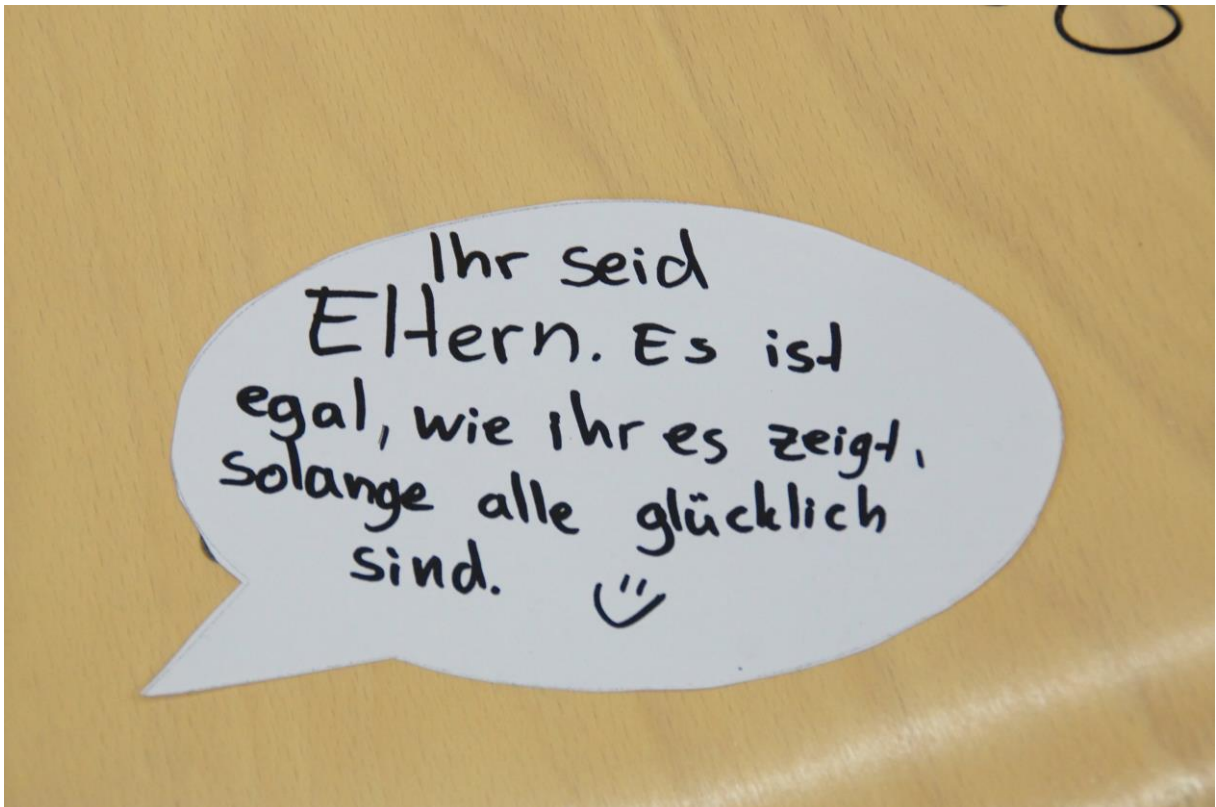 Ihr seid
Eltern. Es ist
egal, wie ihr es zeigt,
solange alle glücklich
sind. ü